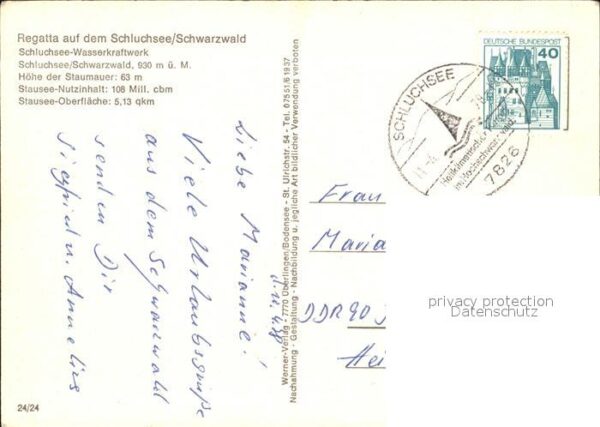 Regatta auf dem Schluchsee/Schwarzwald
Schluchsee-Wasserkraftwerk
Schluchsee/Schwarzwald, 930 m ü. M.
Höhe der Staumauer: 63 m
Stausee-Nutzinhalt: 108 Mill. cbm
Stausee-Oberfläche: 5,13 qkm
Liebe Marianne!
Viele Urlaubsgrüße
aus dem Schwarzwald
senden Dir
Siegfried u. Annelies
24/24
Werner-Verlag - 7770 Überlingen/Bodensee - St. Ulrichstr. 54 - Tel. 07551/61937
Nachahmung - Gestaltung - Nachbildung u. jegliche Art bildlicher Verwendung verboten
DEUTSCHE BUNDESPOST
40
SCHLUCHSEE
7826
Frau
Maria
DDR 90
Hei
privacy protection
Datenschutz